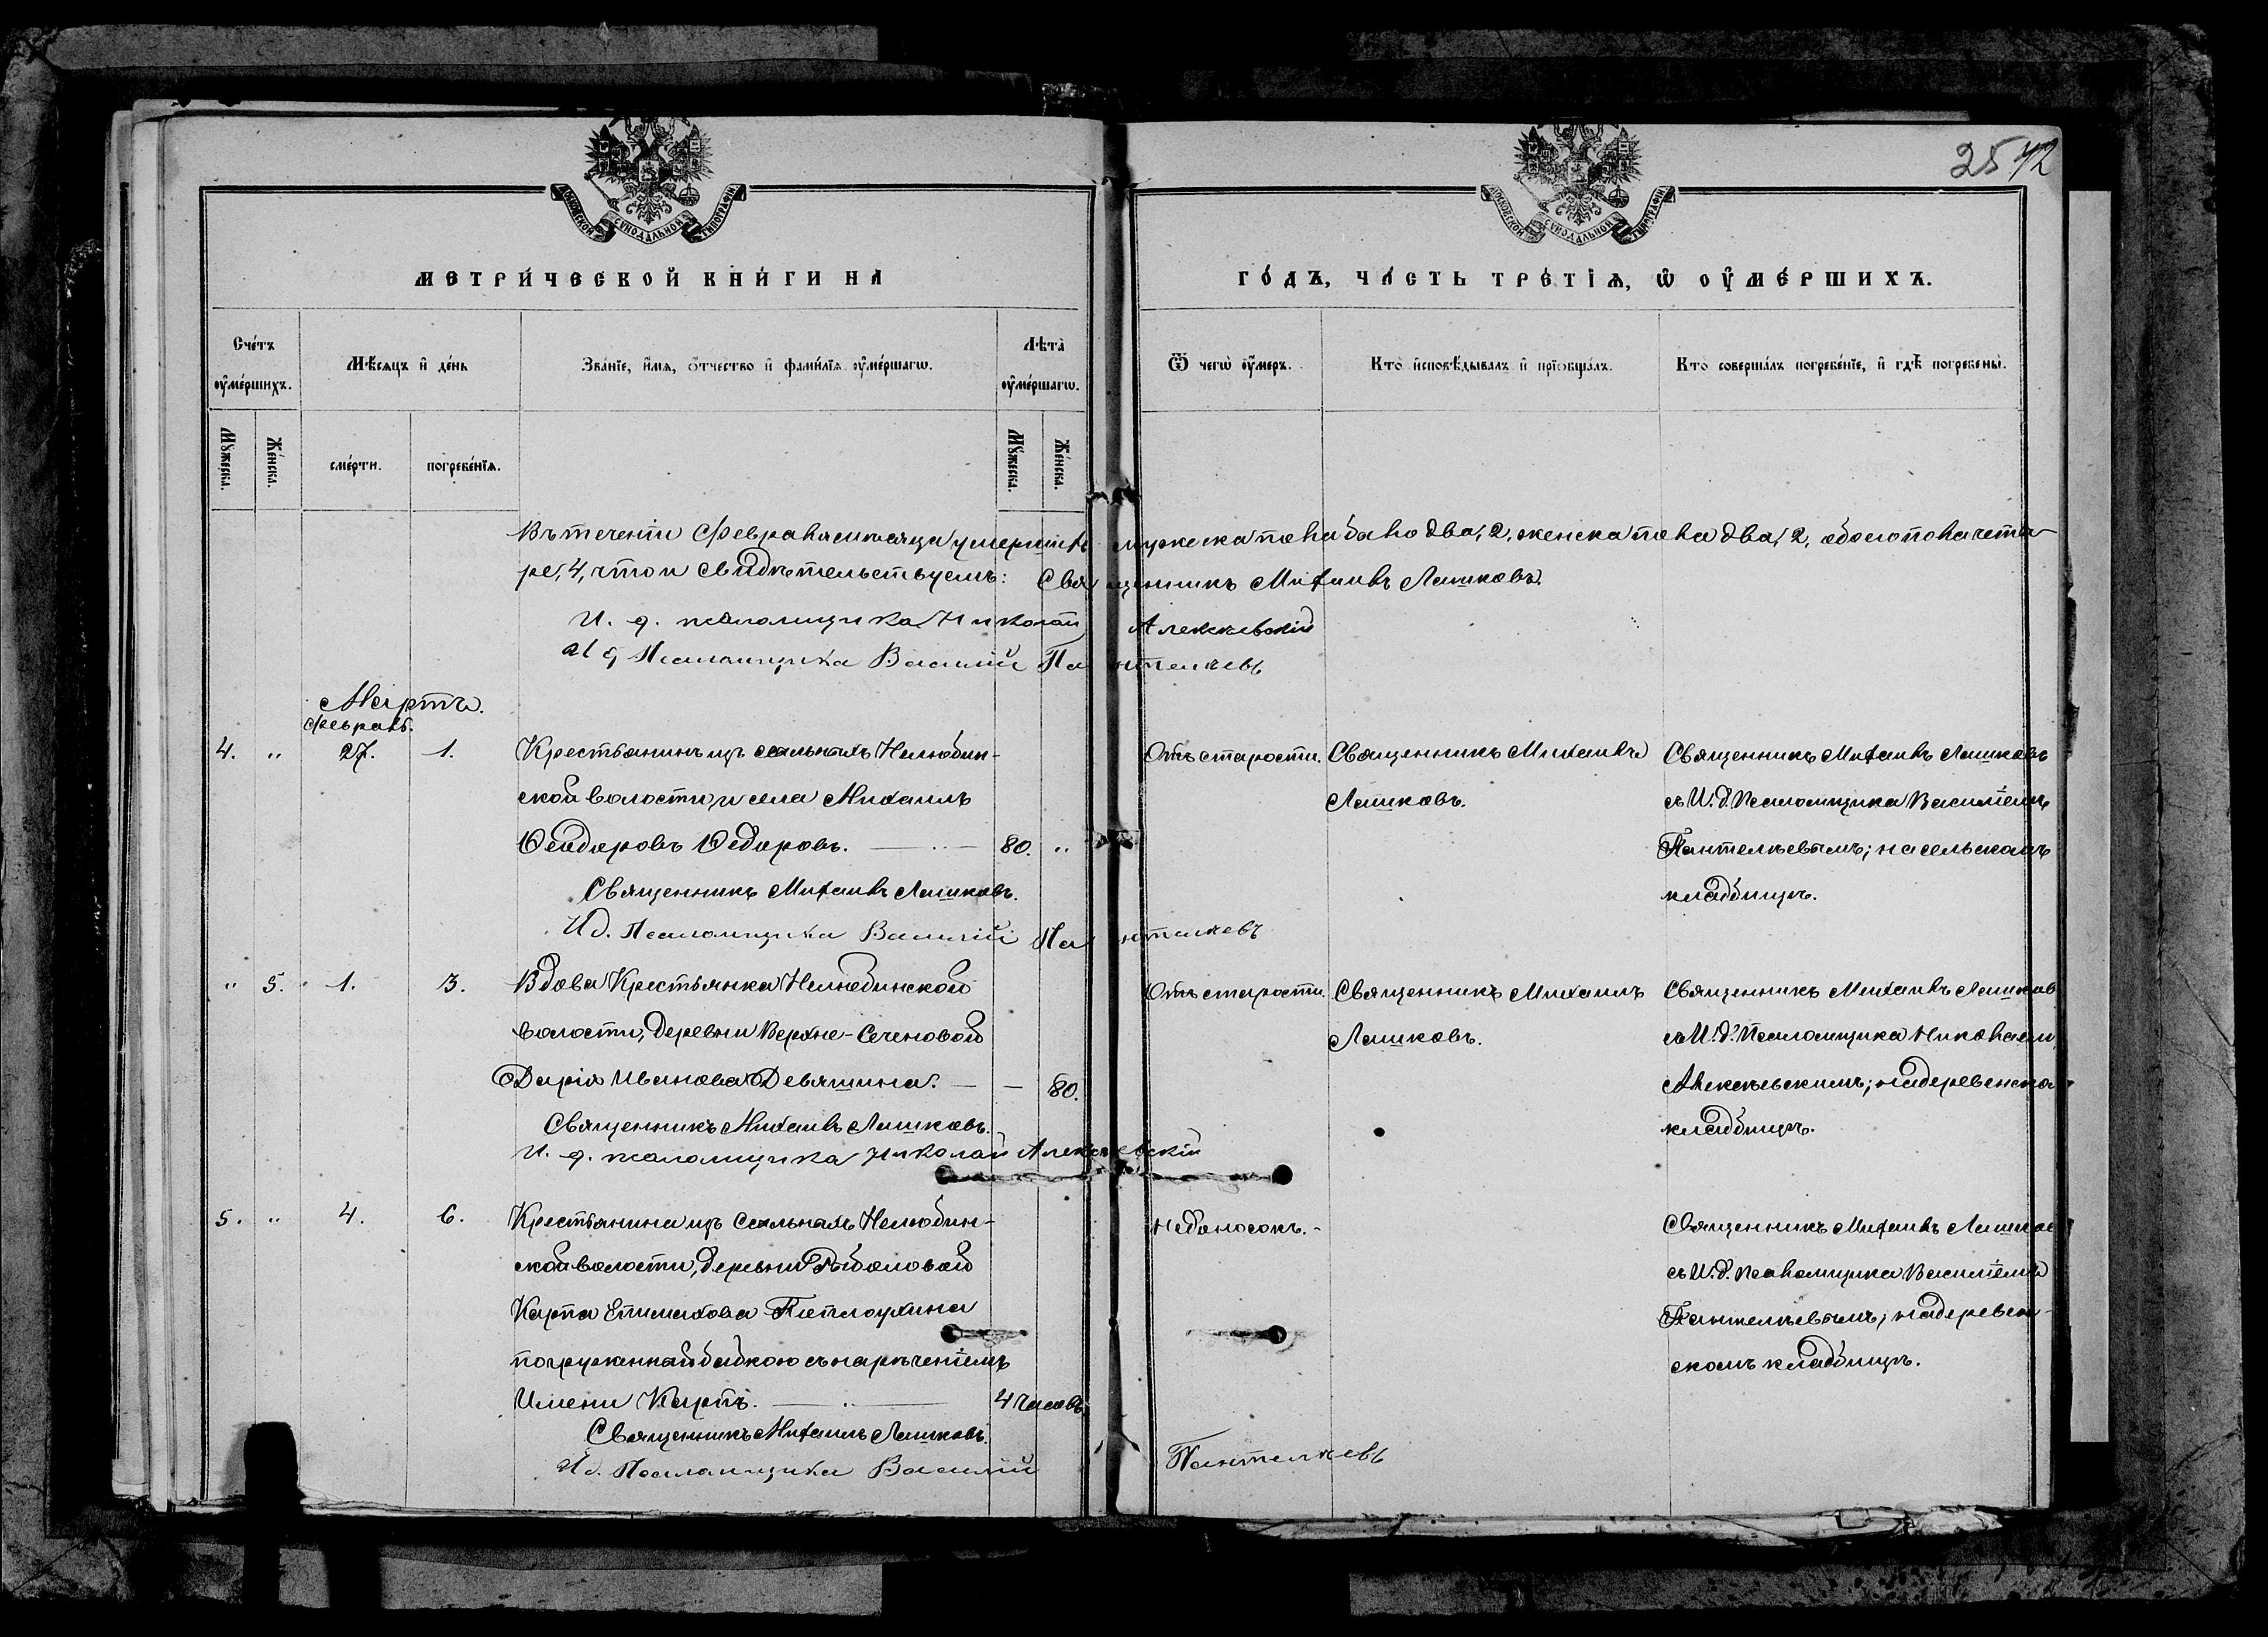 МОСКОВСКОЙ СѴНОДАЛЬНОЙ ТИПОГРАФІИ
МЕТРИ́ЧЕСКОЙ КНИ́ГИ НА
Сче́тъ ᲂу҆ме́ршихъ.
Мѣ́сяцъ и҆ де́нь
Зва́нїе, и҆́мѧ, ѻ҆́тчество и҆ фами́лїѧ ᲂу҆ме́ршагѡ.
Лѣ́та ᲂу҆ме́ршагѡ.
Мꙋ́жеска.
Же́нска.
сме́рти.
погребе́нїѧ.
Мꙋ́жеска.
Же́нска.
2572
МОСКОВСКОЙ СѴНОДАЛЬНОЙ ТИПОГРАФІИ
ГО́ДЪ, ЧА́СТЬ ТРЕ́ТІѦ, Ѡ҆ ОУ҆МЕ́РШИХЪ.
Ѿ чегѡ̀ ᲂу҆́меръ.
Кто̀ и҆сповѣ́дывалъ и҆ прїѡбща́лъ.
Кто̀ соверша́лъ погребе́нїе, и҆ гдѣ̀ погребены̀.
Въ теченіи Февраля мѣсяца умершихъ мужеска пола было два, 2, женска пола два, 2, обоего пола четы-
ре, 4, что и свидѣтельствуемъ: Священникъ Михаилъ Лашковъ.
И. д. псаломщика Николай Алексѣевскій
И д Псаломщика Василій Пантелѣевъ
Мартъ.
Февраль.
4. " 27. 1. Крестьянинъ изъ ссыльныхъ Нелюбин-
ской волости, и села Михаилъ
Феодоровъ Федоровъ. 80. "
Священникъ Михаилъ Лашковъ.
И д. Псаломщика Василій Пантелѣевъ
Отъ старости. Священникъ Михаилъ
Лашковъ.
Священникъ Михаилъ Лашковъ
съ И. д. Псаломщика Василіемъ
Пантелѣевымъ; на сельскомъ
кладбищѣ.
" 5. 1. 3. Вдова Крестьянка Нелюбинской
волости, деревни Верхне-Сеченовой
Дарія Иванова Девяшина. — — 80.
Священникъ Михаилъ Лашковъ.
И. д. псаломщика Николай Алексѣевскій
Отъ старости. Священникъ Михаилъ
Лашковъ.
Священникъ Михаилъ Лашков
съ И. д. Псаломщика Николаем
Алексѣевскимъ; на деревенско
кладбищѣ.
5. " 4. 6. Крестьянина изъ Ссыльныхъ Нелюбин-
ской волости, деревни Рыболовой
Карпа Епимахова Петлоухина
погруженный бабкою съ нарѣченіемъ
Имени Карпъ. 4 часовъ
Священникъ Михаилъ Лашковъ.
И д. Псаломщика Василій Пантелѣевъ
Недоносокъ.-
Священникъ Михаилъ Лашков
съ И. д. Псаломщика Василіемъ
Пантелѣевымъ; на деревен-
скомъ кладбищѣ.